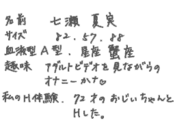 名前 七瀬 夏実
サイズ 82.57.88
血液型 A型. 星座 蟹座
趣味 アダルトビデオを見ながらの
オナニーかな♡
私のH体験. 72才のおじいちゃんと
Hした。